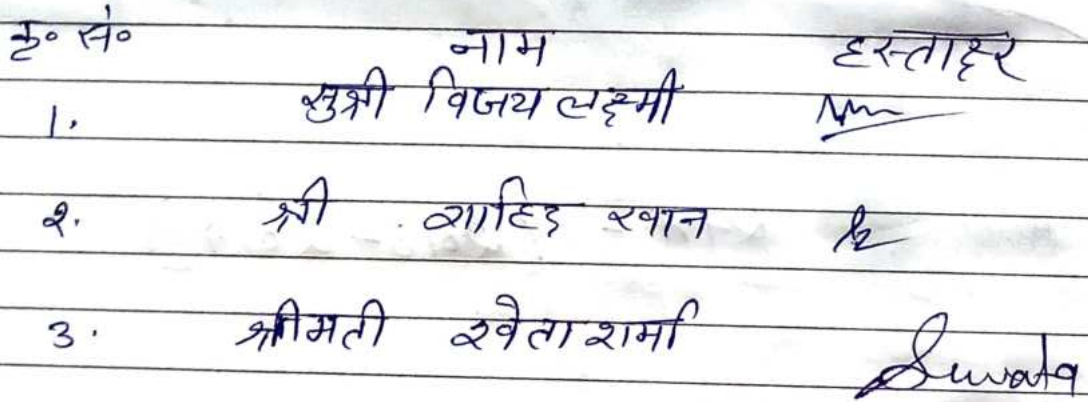 क्र० सं० नाम हस्ताक्षर
1. सुश्री विजय लक्ष्मी
2. श्री शाहिद खान
3. श्रीमती श्वेता शर्मा